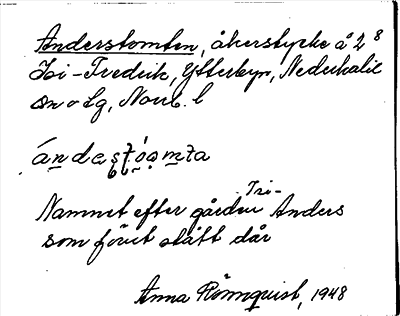 Anderstomten, åkerstycke å 2 8
Isi-Fredrik, Ytterbyn, Nederkalix
sn o lg, Norrb. l
ándastóomta
Namnet efter gården Isi-Anders
som förut stått där
Anna Rönnquist, 1948